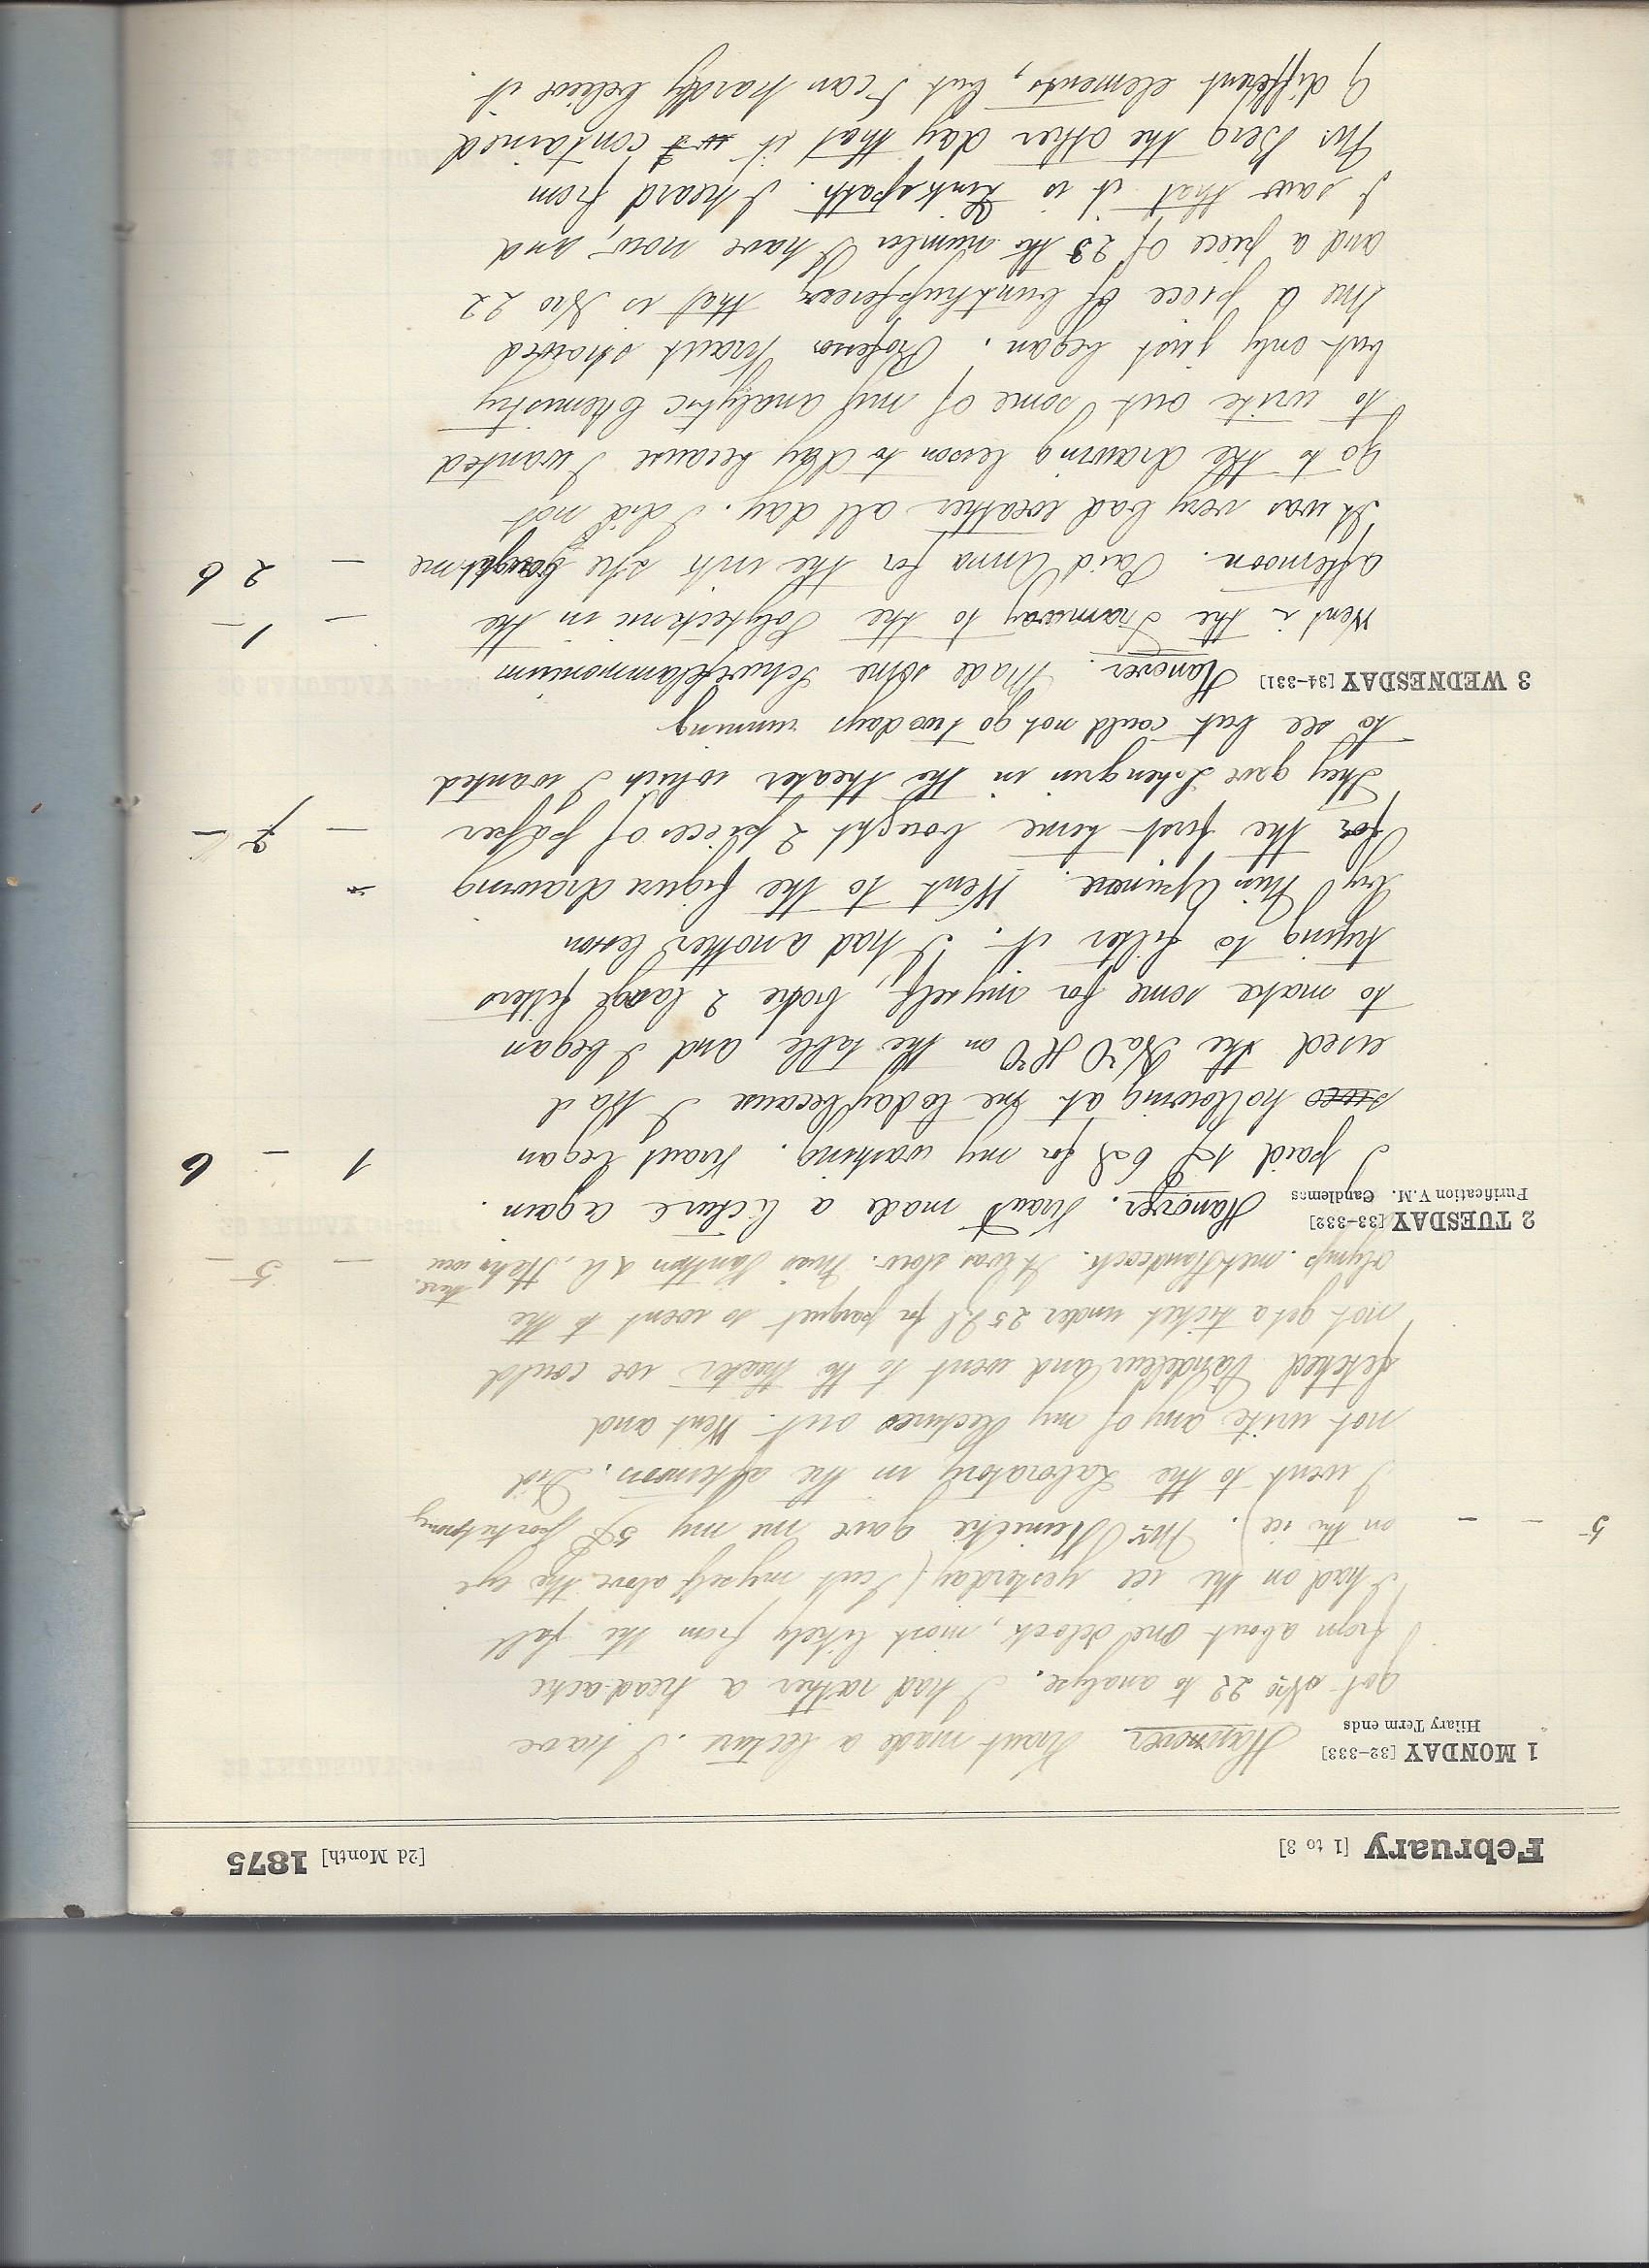 February [1 to 3] [2d Month] 1875
1 MONDAY [32-333] Hanover Kraut made a lecture. I have
Hilary Term ends
got Nro 22 to analyze. I had rather a head-ache
from about one oclock, most likely from the fall
I had on the ice yesterday (I cut myself above the eye
5 - - on the ice). Mr gave me my 5
I went to the Laboratory in the afternoon. Did
not write any of my lectures out. Went and
fetched Vandeleur and went to the theater we could
not get a ticket under 25 for parquet so went to the
olymp. met Handcock. It was slow. Miss were - 5 -
there.
2 TUESDAY [33-332] Hanover. Kraut made a lecture again.
Purification V.M. Candlemas
I paid for my washing. Kraut began 1 - 6
hollowing at me today because I had
used the NaO HO on the table, and I began
to make some for myself, broke 2 large filters
trying to filter it. I had another lesson
by Miss Went to the figure drawing
for the first time bought 2 pieces of paper - 7 -
They gave Lohengrin in the theater which I wanted
to see but could not go two days running
3 WEDNESDAY [34-331] Hanover. Made some Schwefelammonium
Went i the Tramway to the Polytecknic in the - 1 -
afternoon. Paid Anna for the ink she bought me - 2 6
It was very bad weather all day. I did not
go to the drawing lesson to day because I wanted
to write out some of my analytic Chemistry
but only just began. Professor Kraut showed
me a piece of buntkupfererz that is Nro 22
and a piece of 23 the number I have now, and
I saw that it is Zinkspath. I heard from
Mr. Berg the other day that it contained
9 different elements, but I can hardly believe it.